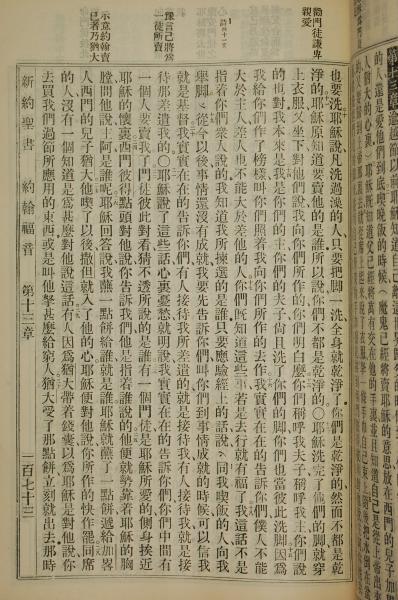 勸門徒謙卑
親愛
詩四十一
豫言己將爲
一徒所賣
示意約翰賣
己者乃猶大
也要洗耶穌說凡洗過澡的人只要把脚一洗全身就乾淨了你們是乾淨的然而不都是乾
淨的耶穌原知道要賣他的是誰所以說你們不都是乾淨的○耶穌洗完了他們的脚就穿
上衣服又坐下對他們說我向你們所作的你們明白麼你們稱呼我夫子稱呼我主你們說
的也對我本來是我是你們的主你們的夫子尙且洗了你們的脚你們也當彼此洗脚因爲
我給你們作了榜樣叫你們照着我向你們所作的去作我實實在在的告訴你們僕人不能
大於主人差人也不能大於差他的人你們旣知道這些事若是去行就有福了我這話不是
指着你們衆人說的我知道我所揀選的是誰只要應驗經上的話說同我喫飯的人向我
舉脚從今以後事情還沒有成就我要先告訴你們叫你們到事情成就的時候可以信我
就是基督我實實在在的告訴你們有人接待我所差遣的就是接待我有人接待我就是接
待那差遣我的○耶穌說了這些話心裏憂愁就明說我實實在在的告訴你們你們中間有
一個人要賣我了門徒彼此對看猜不透所說的是誰有一個門徒是耶穌所愛的側身挨近
耶穌的懷裏西門彼得點頭對他說你告訴我們他是指着誰說的他便就勢靠着耶穌的胸
膛問他說主阿是誰呢耶穌回答說我蘸一點餅給誰就是誰耶穌就蘸了一點餅遞給加畧
人西門的兒子猶大他喫了以後撒但就入了他的心耶穌便對他說你所作的快作罷同席
的人沒有一個知道是爲甚麼對他說這話有人因爲猶大帶着錢囊以爲耶穌是對他說你
去買我們過節所應用的東西或是叫他拏甚麼給窮人猶大受了那點餅立刻就出去那時
新約聖書 約翰福音 第十三章 一百七十三